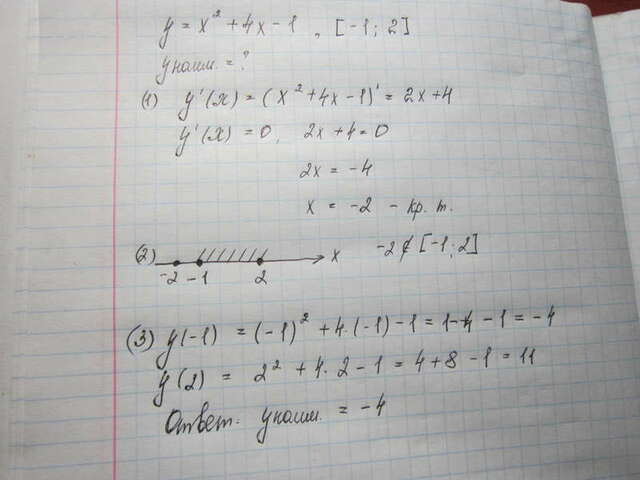 y = x² + 4x - 1 , [-1; 2]
y наим. = ?
(1) y'(x) = (x² + 4x - 1)' = 2x + 4
y'(x) = 0, 2x + 4 = 0
2x = -4
x = -2 - кр. т.
(2) -2 -1 2 x -2 ∉ [-1; 2]
(3) y(-1) = (-1)² + 4·(-1) - 1 = 1 - 4 - 1 = -4
y(2) = 2² + 4·2 - 1 = 4 + 8 - 1 = 11
Ответ. y наим. = -4